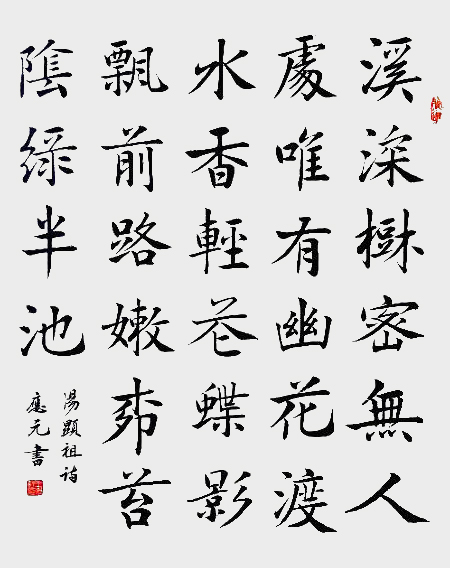 溪深樹密無人
處唯有幽花渡
水香輕芲蝶影
飄前路嫩苔
隂綠半池
湯顯祖詩
應元書